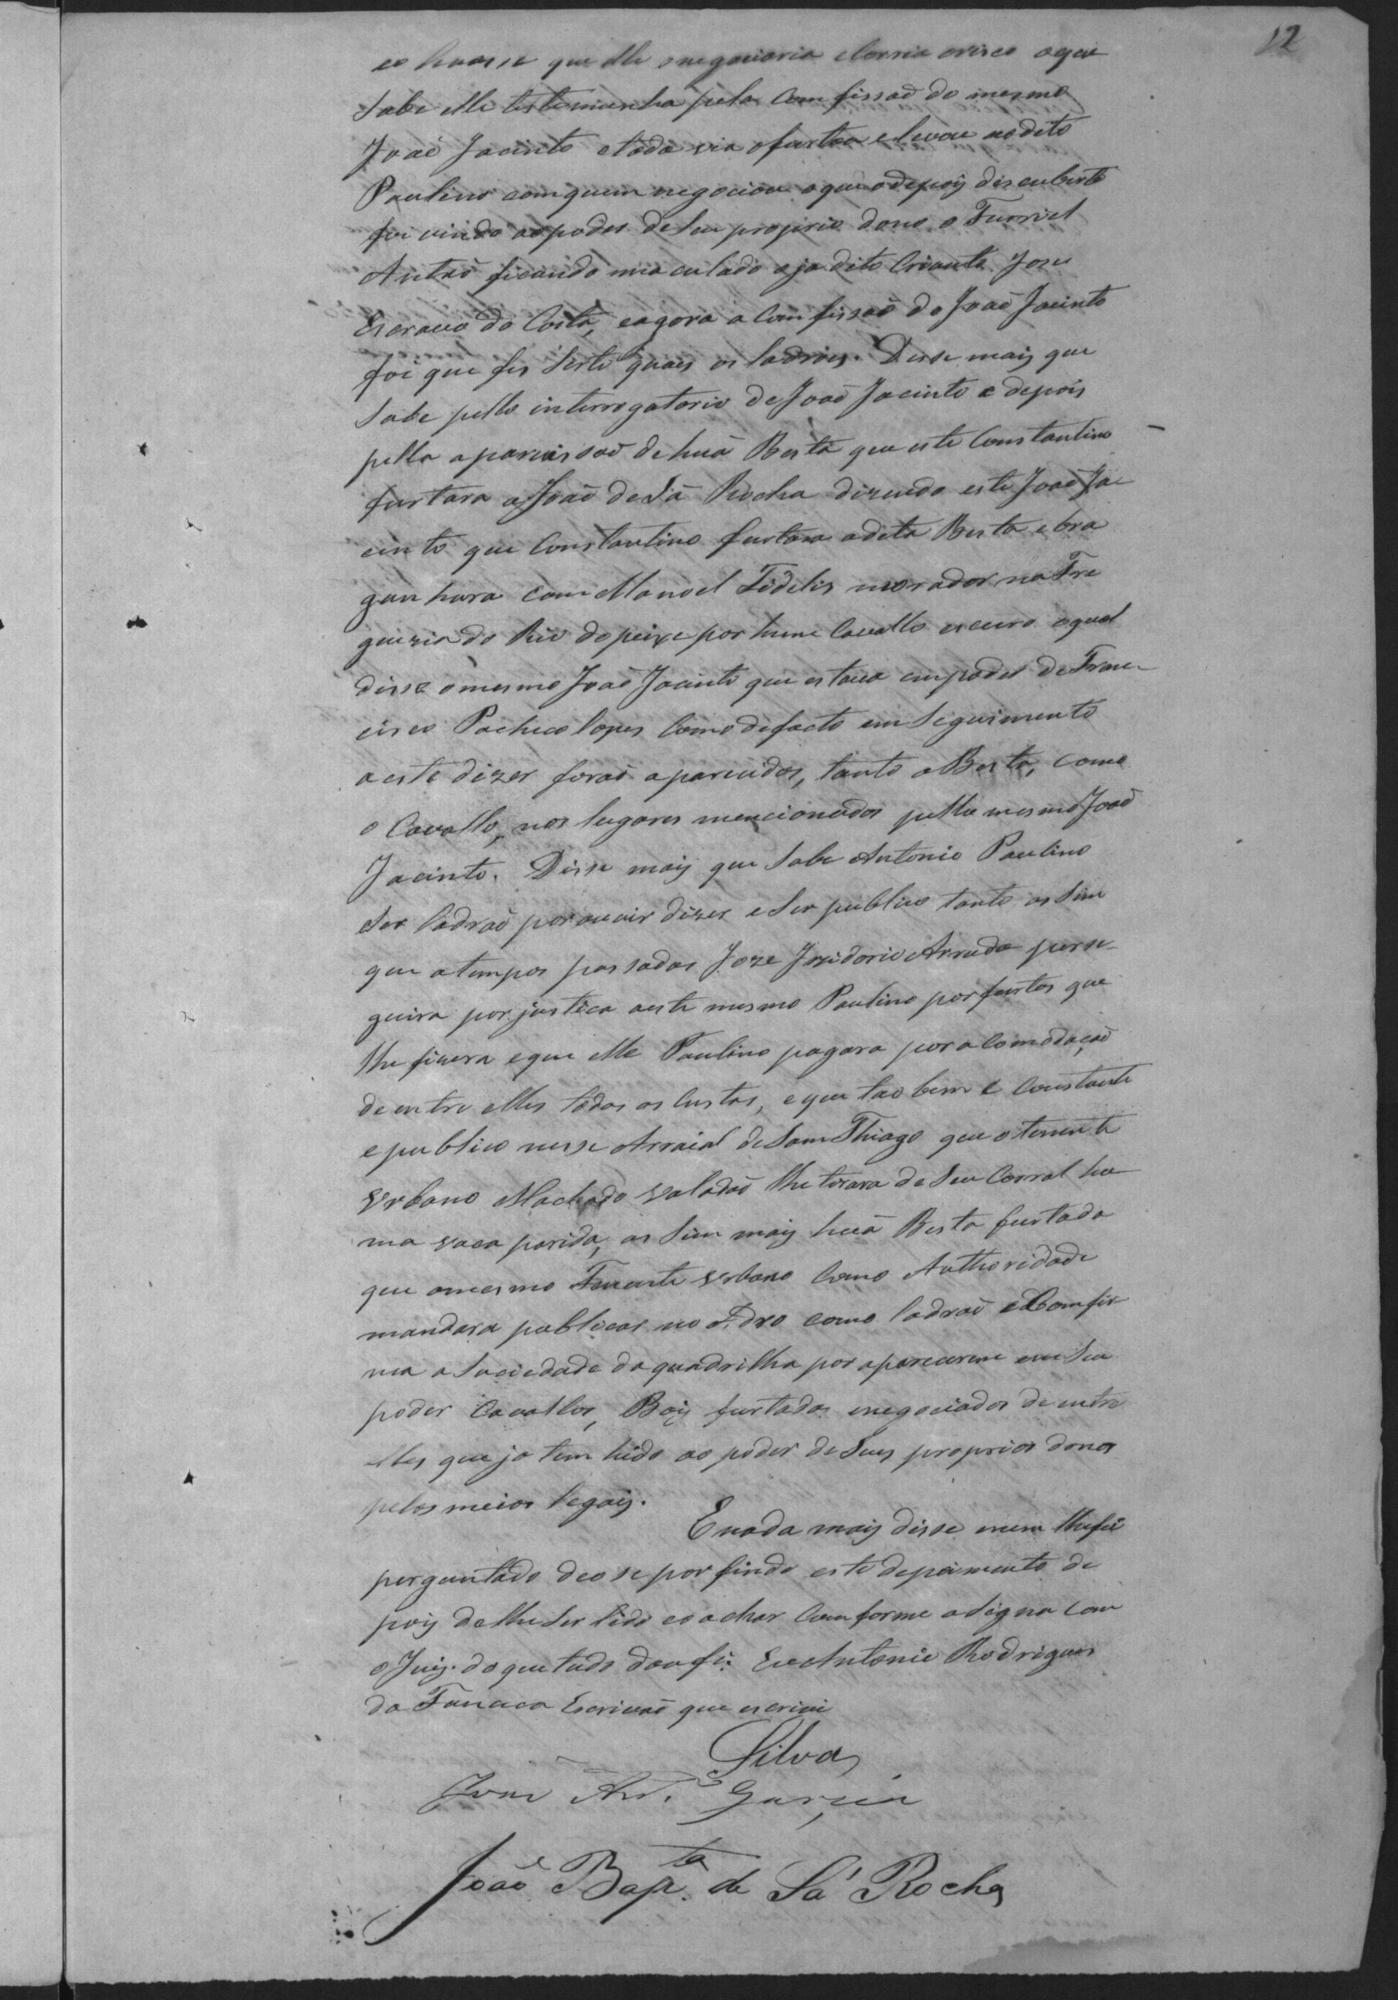 12
que elle negociaria e corria o risco o que
Sabe elle testemunha pela Comfissaõ do mesmo
Joaõ Jacinto e toda via o furtou e levou ao dito
Paulino com quem negociou o que o depois discuberto
foi vindo ao poder de Seu proprio dono o Furriel
Antaõ ficando maculado o ja dito Crioullo Jose
Escravo do Costa, e agora a Comfissaõ do Joaõ Jacinto
foi que fes Serto quais os ladrois. Disse mais que
Sabe pello interrogatorio de Joaõ Jacinto e depois
pella aparissaõ de huã Besta que este Constantino
furtara a Joaõ de Sá Rocha dizendo este Joaõ Ja
cinto que Constantino furtara a dita Besta e bra
ganhara com Manoel Fidelis morador na Fre
guezia do Rio do peixe por hum Cavallo escuro o qual
disse o mesmo Joaõ Jacinto que estava em poder de Fran
cisco Pacheco lopes Como de facto em Seguimento
a este dizer foraõ aparecidos, tanto a Besta, como
o Cavallo, nos lugares mencionados pello mesmo Joaõ
Jacinto. Disse mais que Sabe Antonio Paulino
Ser ladraõ por ouvir dizer e Ser publico tanto as Sim
que a tempos passados Joze Izidorio Arruda perse
guira por justiça a este mesmo Paulino por furtos que
lhe fizera e que elle Paulino pagara por acomodaçaõ
de entre elles todas as Custas, e que tao bem e Constante
e publico nesse Arraial de Sam Thiago que o tenente
Urbano Machado Valadaõ lhe tirara de Seu Corral hu
ma vaca parida, as Sim mais huã Besta furtada
que o mesmo Tenente Urbano Como Authoridade
mandara publicar no Adro como ladraõ e Comfir
ma a Sociedade da quadrilha por aparecerem em Seu
poder Cavallos, Bois furtados e negociados de entre
elles que ja tem hido ao poder de Seus proprios donos
pelos meios legais.
E nada mais disse e nem lhe foi
perguntado deose por findo este depoimento de
pois de lhe Ser lido e o achar Comforme a Signa com
o Juiz do que tudo dou fé. Eu Antonio Rodrigues
da Fonceca Escrivaõ que escrivi
Silva
Jose Ant. Garcia
Joaõ Bap.ta de Sá Rocha